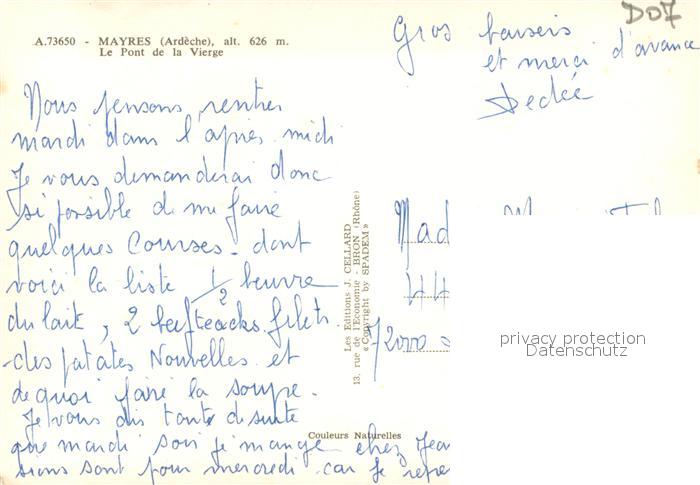 A.73650 - MAYRES (Ardèche), alt. 626 m.
Le Pont de la Vierge
D07
Gros baisers
et merci d'avance
Dédée
Nous pensons rentrer
mardi dans l'après midi
Je vous demanderai donc
si possible de me faire
quelques Courses. dont
voici la liste 1/2 beurre
du lait, 2 beefteacks filets
des patates Nouvelles et
de quoi faire la soupe.
Je vous dis toute de suite
que mardi soir je mange chez Jea
sions sont pour mercredi car je repr
Les Editions J. CELLARD
13, rue de l'Economie - BRON (Rhône)
« Copyright by SPADEM »
Couleurs Naturelles
Mad
42000
privacy protection
Datenschutz